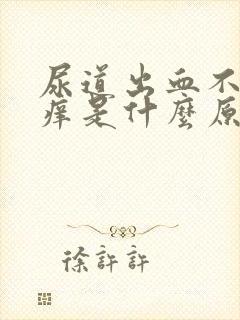 尿道出血不
痒是什麼原
徐許許